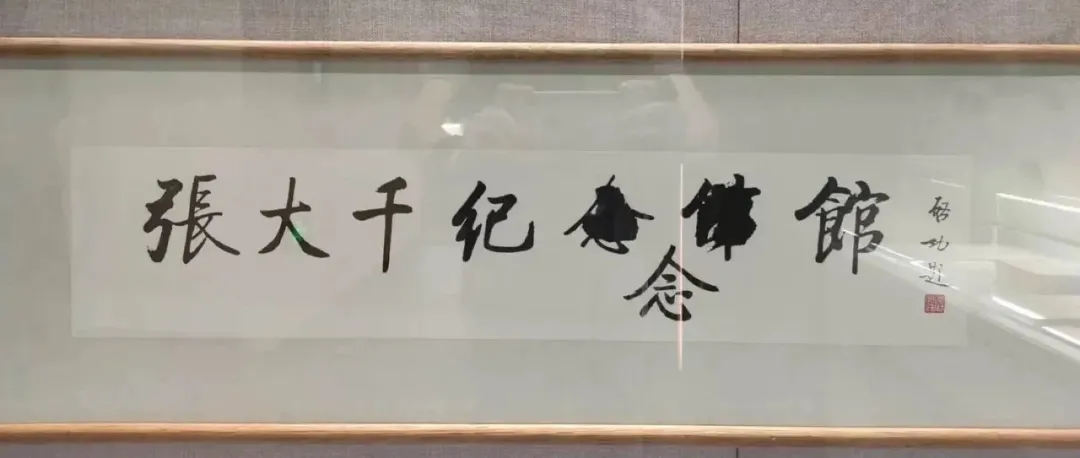 張大千纪念館
启功题